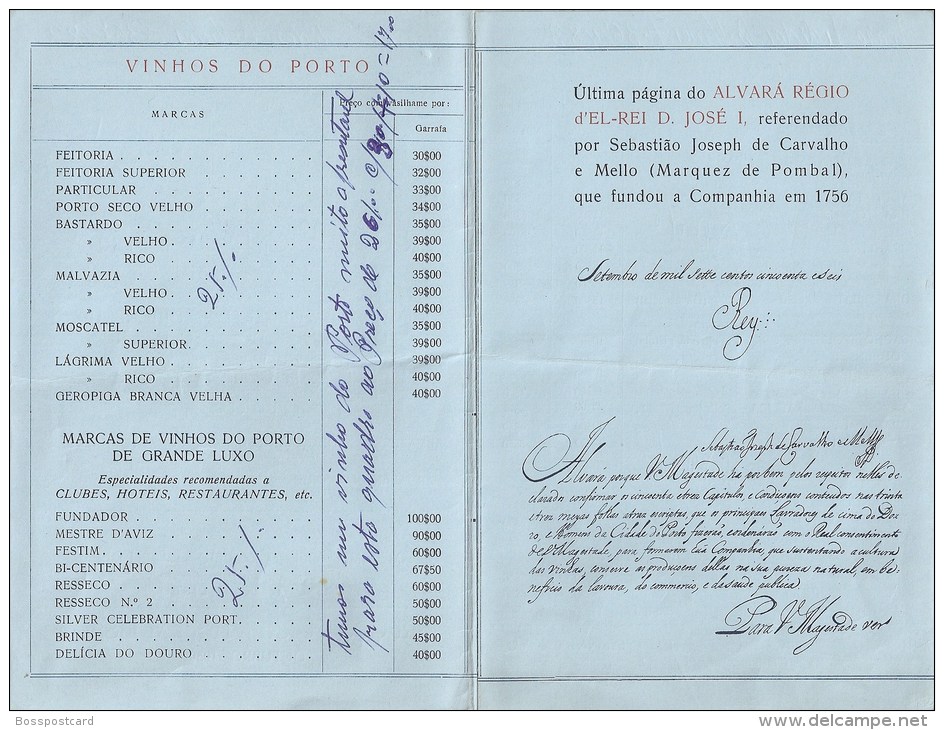 VINHOS DO PORTO
MARCAS
Preço com vasilhame por:
Garrafa
FEITORIA . . . . . . . . . . . . 30$00
FEITORIA SUPERIOR . . . . . . . 32$00
PARTICULAR . . . . . . . . . . 33$00
PORTO SECO VELHO . . . . . . . 34$00
BASTARDO . . . . . . . . . . . 35$00
» VELHO . . . . . . . . . 39$00
» RICO . . . . . . . . . 40$00
MALVAZIA . . . . . . . . . . . 35$00
» VELHO . . . . . . . . . 39$00
» RICO . . . . . . . . . 40$00
MOSCATEL . . . . . . . . . . . 35$00
» SUPERIOR . . . . . . . 39$00
LÁGRIMA VELHO . . . . . . . . 39$00
» RICO . . . . . . . . . 40$00
GEROPIGA BRANCA VELHA . . . . . 40$00
25./.
MARCAS DE VINHOS DO PORTO
DE GRANDE LUXO
Especialidades recomendadas a
CLUBES, HOTEIS, RESTAURANTES, etc.
FUNDADOR . . . . . . . . . . . 100$00
MESTRE D'AVIZ . . . . . . . . . 90$00
FESTIM . . . . . . . . . . . . 60$00
BI-CENTENÁRIO . . . . . . . . 67$50
RESSECO . . . . . . . . . . . 60$00
RESSECO N.º 2 . . . . . . . . . 50$00
SILVER CELEBRATION PORT . . . . 50$00
BRINDE . . . . . . . . . . . . 45$00
DELÍCIA DO DOURO . . . . . . . 40$00
25./.
temos um vinho do Porto muito apresentavel
para esta quadra ao Preço de
Última página do ALVARÁ RÉGIO
d'EL-REI D. JOSÉ I, referendado
por Sebastião Joseph de Carvalho
e Mello (Marquez de Pombal),
que fundou a Companhia em 1756
Setembro de mil sette centos cincoenta e seis
Rey
Sebastiao Joseph de Carvalho e Mello
Alvará porque V. Magestade ha por bem pelos respeitos nelle de
clarados confirmar os cincoenta e tres Capitulos, e Condiçoens conteudos nas trinta
e tres meyas folhas atraz escriptas, que os principaes Lavradores de cima do Dou
ro, e Homens da Cidade do Porto fizeraõ, e ordenaraõ com o Real consentimento
de V. Magestade, para formarem hua Companhia, que sustentando a cultura
das vinhas, conserve as producçoens dellas na sua pureza natural, em be-
neficio da lavoura, do commercio, e da saude publica
Para V. Magestade ver
Bosspostcard
www.delcampe.net